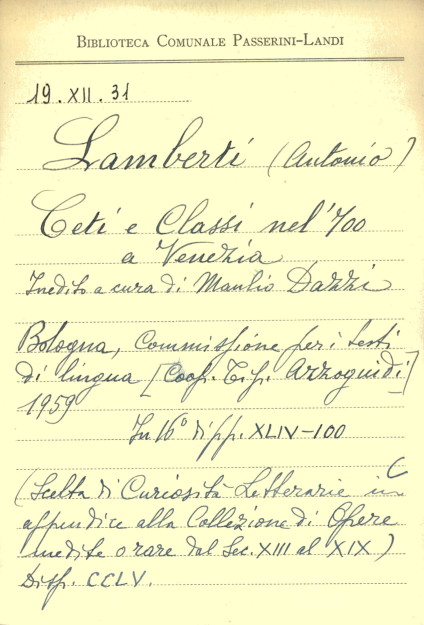 BIBLIOTECA COMUNALE PASSERINI-LANDI
19.XII.31
Lamberti (Antonio)
Ceti e Classi nel '700
a Venezia
Inedito a cura di Manlio Dazzi
Bologna, Commissione per i testi
di lingua [Coop. Tip. Azzoguidi]
1959
In 16° di pp. XLIV-100
(Scelta di Curiosità Letterarie in
appendice alla Collezione di Opere
inedite o rare dal Sec. XIII al XIX)
Disp. CCLV.